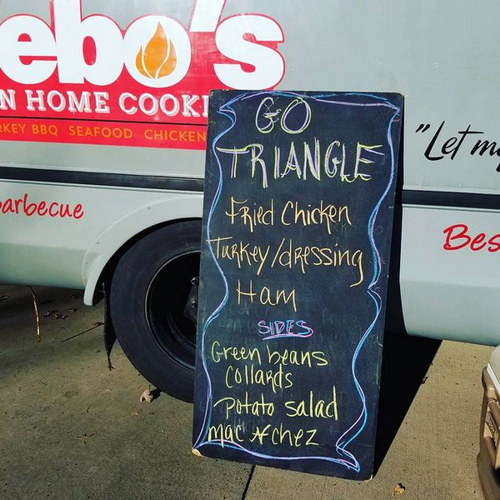 ebo's
N HOME COOKI
RKEY BBQ SEAFOOD CHICKEN
arbecue
"Let m
Bes
GO
TRIANGLE
Fried Chicken
Turkey/dressing
Ham
SIDES
Green beans
Collards
potato salad
mac & chez